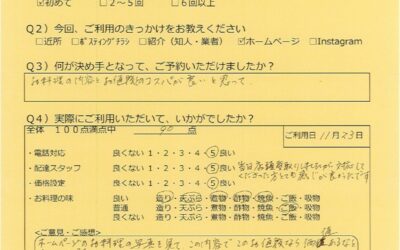 ☑初めて □2～5回 □6回以上
Q2）今回、ご利用のきっかけをお教えください
□近所 □ﾎﾟｽﾃｨﾝｸﾞﾁﾗｼ □紹介（知人・業者） ☑ホームページ □Instagram
Q3）何が決め手となって、ご予約いただけましたか？
お料理の内容とお値段のコスパが良いと思って
Q4）実際にご利用いただいて、いかがでしたか？
全体 100点満点中 90 点
ご利用日 11月23日
・電話対応 良くない 1・2・3・4・5 良い
・配達スタッフ 良くない 1・2・3・4・5 良い
・価格設定 良くない 1・2・3・4・5 良い
・お料理の味 良い 造り・天ぷら・煮物・酢物・焼魚・ご飯・吸物
普通 造り・天ぷら・煮物・酢物・焼魚・ご飯・吸物
良くない 造り・天ぷら・煮物・酢物・焼魚・ご飯・吸物
＜ご意見・ご感想＞
ホームページのお料理の写真を見て この内容でこのお値段なら